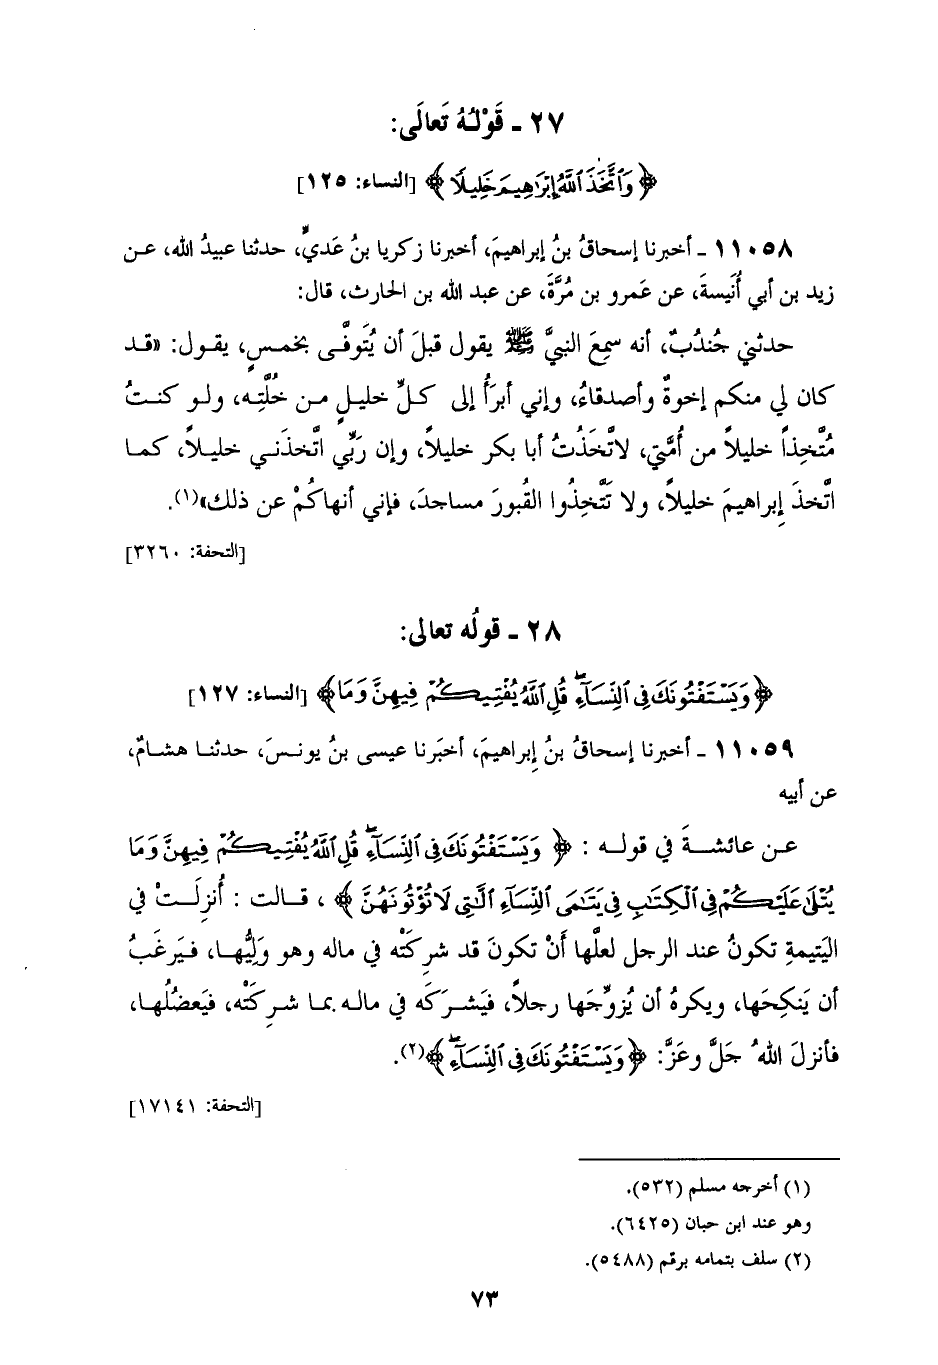 ٢٧ ـ قَوْلُهُ تَعالَى:
﴿وَاتَّخَذَ اللَّهُ إِبْرَاهِيمَ خَلِيلًا﴾ [النساء: ١٢٥]
١١٠٥٨ ـ أخبرنا إسحاقُ بنُ إبراهيمَ، أخبرنا زكريا بنُ عَديٍّ، حدثنا عبيدُ الله، عن
زيد بن أبي أُنَيسةَ، عن عَمرو بن مُرَّةَ، عن عبد الله بن الحارث، قال:
حدثني جُندُبٌ، أنه سمِعَ النبيَّ ﷺ يقول قبلَ أن يُتَوفَّى بخمسٍ، يقول: «قد
كان لي منكم إخوةٌ وأصدقاءُ، وإني أبرَأُ إلى كلِّ خليلٍ من خُلَّتِه، ولو كنتُ
مُتَّخِذاً خليلاً من أُمَّتي، لاتَّخَذتُ أبا بكر خليلاً، وإن رَبِّي اتَّخذَني خليلاً، كما
اتَّخذَ إبراهيمَ خليلاً، ولا تَتَّخِذُوا القُبورَ مساجدَ، فإني أنهاكُمْ عن ذلك»(١).
[التحفة: ٣٢٦٠]
٢٨ ـ قولُه تعالى:
﴿وَيَسْتَفْتُونَكَ فِي النِّسَاءِ ۖ قُلِ اللَّهُ يُفْتِيكُمْ فِيهِنَّ وَمَا﴾ [النساء: ١٢٧]
١١٠٥٩ ـ أخبرنا إسحاقُ بنُ إبراهيمَ، أخبَرنا عيسى بنُ يونسَ، حدثنا هشامٌ،
عن أبيه
عن عائشةَ في قوله : ﴿وَيَسْتَفْتُونَكَ فِي النِّسَاءِ ۖ قُلِ اللَّهُ يُفْتِيكُمْ فِيهِنَّ وَمَا
يُتْلَىٰ عَلَيْكُمْ فِي الْكِتَابِ فِي يَتَامَى النِّسَاءِ اللَّاتِي لَا تُؤْتُونَهُنَّ﴾ ، قالت : أُنزِلَتْ في
اليَتيمةِ تكونُ عند الرجل لعلَّها أَنْ تكونَ قد شرِكَتْه في ماله وهو وَلِيُّها، فيَرغَبُ
أن يَنكِحَها، ويكرهُ أن يُزوِّجَها رجلاً، فيَشرَكَه في ماله بما شرِكَتْه، فيَعضُلُها،
فأنزلَ اللهُ جَلَّ وعَزَّ: ﴿وَيَسْتَفْتُونَكَ فِي النِّسَاءِ ۖ﴾(٢).
[التحفة: ١٧١٤١]
(١) أخرجه مسلم (٥٣٢).
وهو عند ابن حبان (٦٤٢٥).
(٢) سلف بتمامه برقم (٥٤٨٨).
٧٣